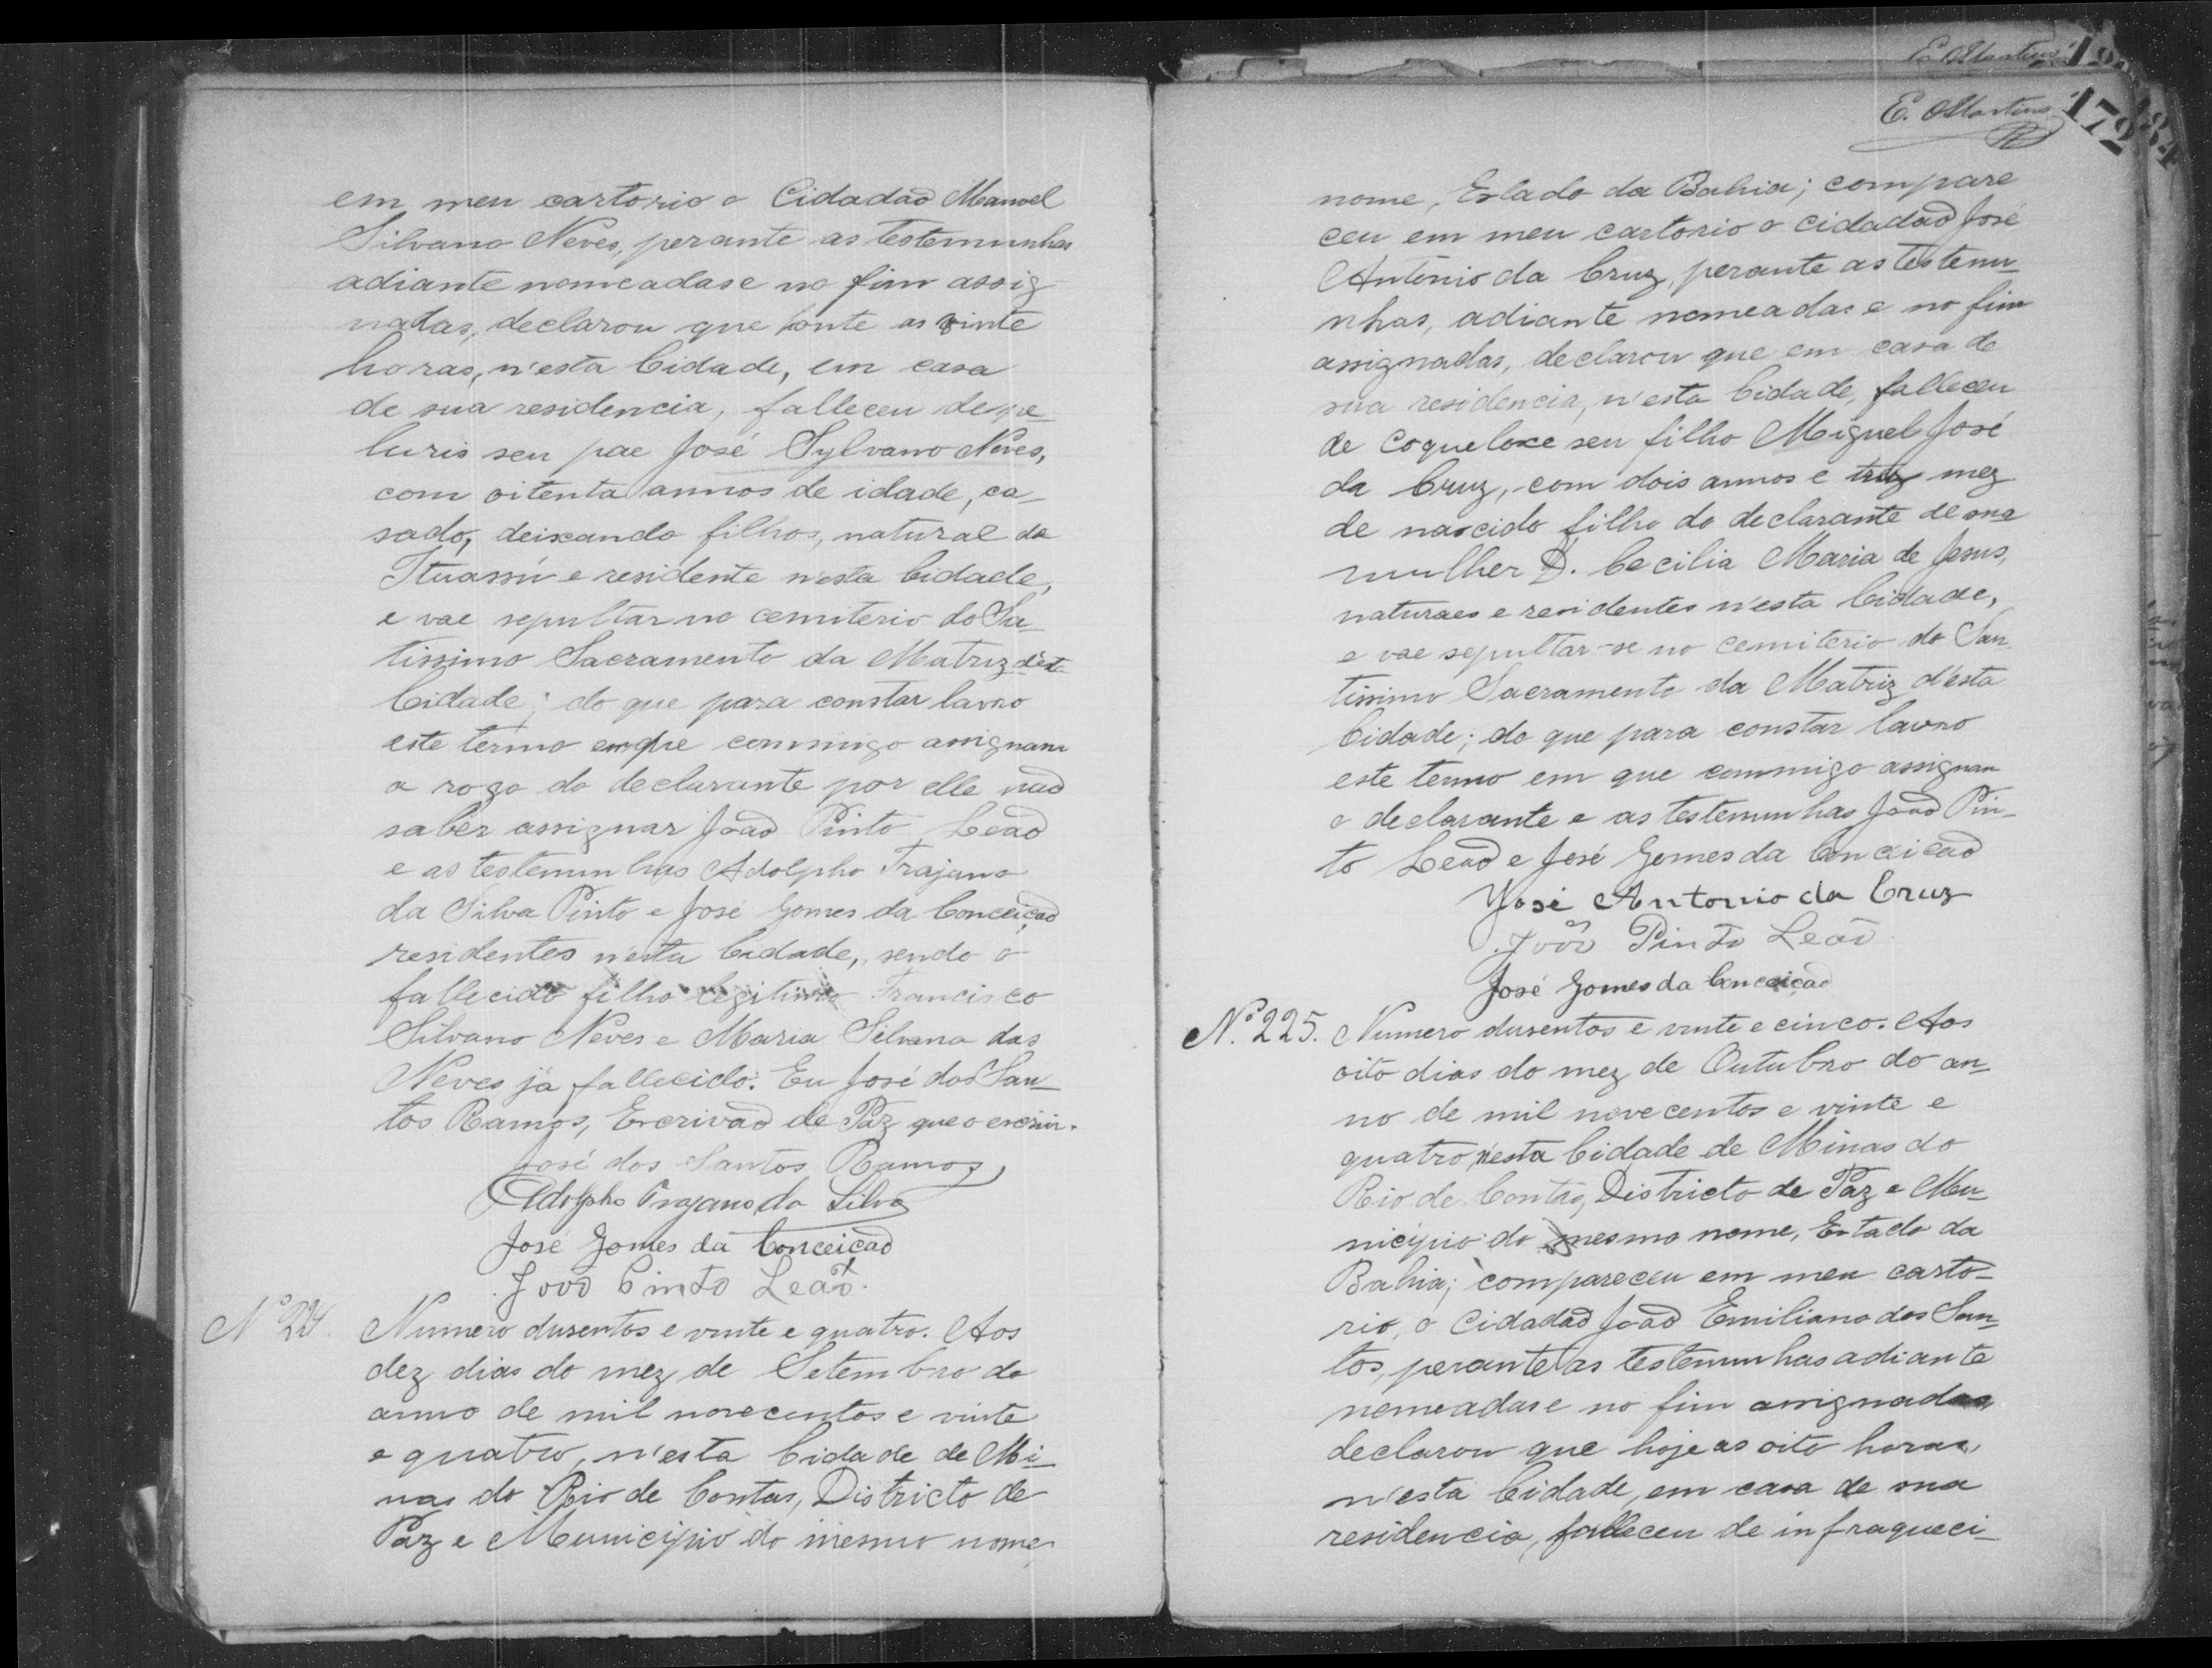 em meu cartorio o Cidadão Manoel
Silvano Neves, perante as testemunhas
adiante nomeadas e no fim assig
natas, declarou que honte as vinte
horas, n'esta Cidade, em casa
de sua residencia, falleceu de ple-
luris seu pae José Sylvano Neves,
com oitenta annos de idade, ca-
sado, deixando filhos, natural de
Ituassú e residente n'esta Cidade,
e vae sepultar no cemiterio do Sa-
tissimo Sacramento da Matriz d'esta
Cidade; do que para constar lavro
este termo em que commigo assignam
a rogo do declarante por elle não
saber assignar João Pinto Leão
e as testemunhas Adolpho Trajano
da Silva Pinto e José Gomes da Conceição
residentes n'esta Cidade, sendo o
fallecido filho legitimo Francisco
Silvano Neves e Maria Silvana das
Neves já fallecido. Eu José dos San-
tos Ramos, Escrivão de Paz que o escrivi.
José dos Santos Ramos
Adolpho Trajano da Silva
José Gomes da Conceição
João Pinto Leão.
Nº 224. Numero dusentos e vinte e quatro. Aos
dez dias do mez de Setembro do
anno de mil novecentos e vinte
e quatro, n'esta Cidade de Mi-
nas do Rio de Contas, Districto de
Paz e Municipio do mesmo nome,
E. Martins
E. Martins
172
184
nome, Estado da Bahia; compare
ceu em meu cartorio o cidadão José
Antônio da Cruz, perante as testemu-
nhas, adiante nomeadas e no fim
assignadas, declarou que em casa de
sua residencia, n'esta Cidade, falleceu
de coqueloxe seu filho Miguel José
da Cruz, com dois annos e mez
de nascido filho do declarante de sua
mulher D. Cecilia Maria de Jesus,
naturaes e residentes n'esta Cidade,
e vae sepultar-se no cemiterio do San
tissimo Sacramento da Matriz d'esta
Cidade; do que para constar lavro
este termo em que commigo assignam
o declarante e as testemunhas João Pin-
to Leão e José Gomes da Conceição
José Antonio da Cruz
João Pinto Leão
José Gomes da Conceição
Nº 225. Numero dusentos e vinte e cinco. Aos
oito dias do mez de Outubro do an-
no de mil novecentos e vinte e
quatro, n'esta Cidade de Minas do
Rio de Contas, Districto de Paz e Mu-
nicipio do mesmo nome, Estado da
Bahia; compareceu em meu carto-
rio, o Cidadão João Emiliano dos San-
tos, perante as testemunhas adiante
nomeadas e no fim assignadas
declarou que hoje as oito horas,
n'esta Cidade, em casa de sua
residencia, falleceu de infraqueci-